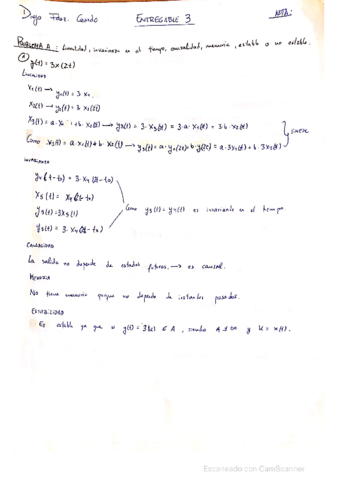 Diego Fdez. Cando ENTREGABLE 3 NOTA:
PROBLEMA A: Linealidad, invarianza en el tiempo, causalidad, memoria, estable o no estable.
y(t) = 3x(2t)
LINEALIDAD
x1(t) → y1(t) = 3·x1
x2(t) → y2(t) = 3·x2(2t)
x3(t) = a·x1 + b·x2(t) → y3(t) = 3·x3(t) = 3·a·x1(t) + 3·b·x2(t)
Como x3(t) = a·x1(t) + b·x2(t) → y3(t) = a·y1(2t) + b·y(2t) = a·3x1(t) + b·3x2(t)
INVARIANZA
y1(t-to) = 3·x1(2t-to)
x3(t) = x1(2t-to)
y3(t) = 3x3(t)
y3(t) = 3·x1(2t-to)
Como y3(t) = y1(t) es invariante en el tiempo.
CAUSALIDAD
La salida no depende de estados futuros → es causal.
MEMORIA
No tiene memoria porque no depende de instantes pasados.
ESTABILIDAD
Es estable ya que y(t) = 3|k| ∈ A, siendo A ≠ ∞ y k = x(t).
Escaneado con CamScanner